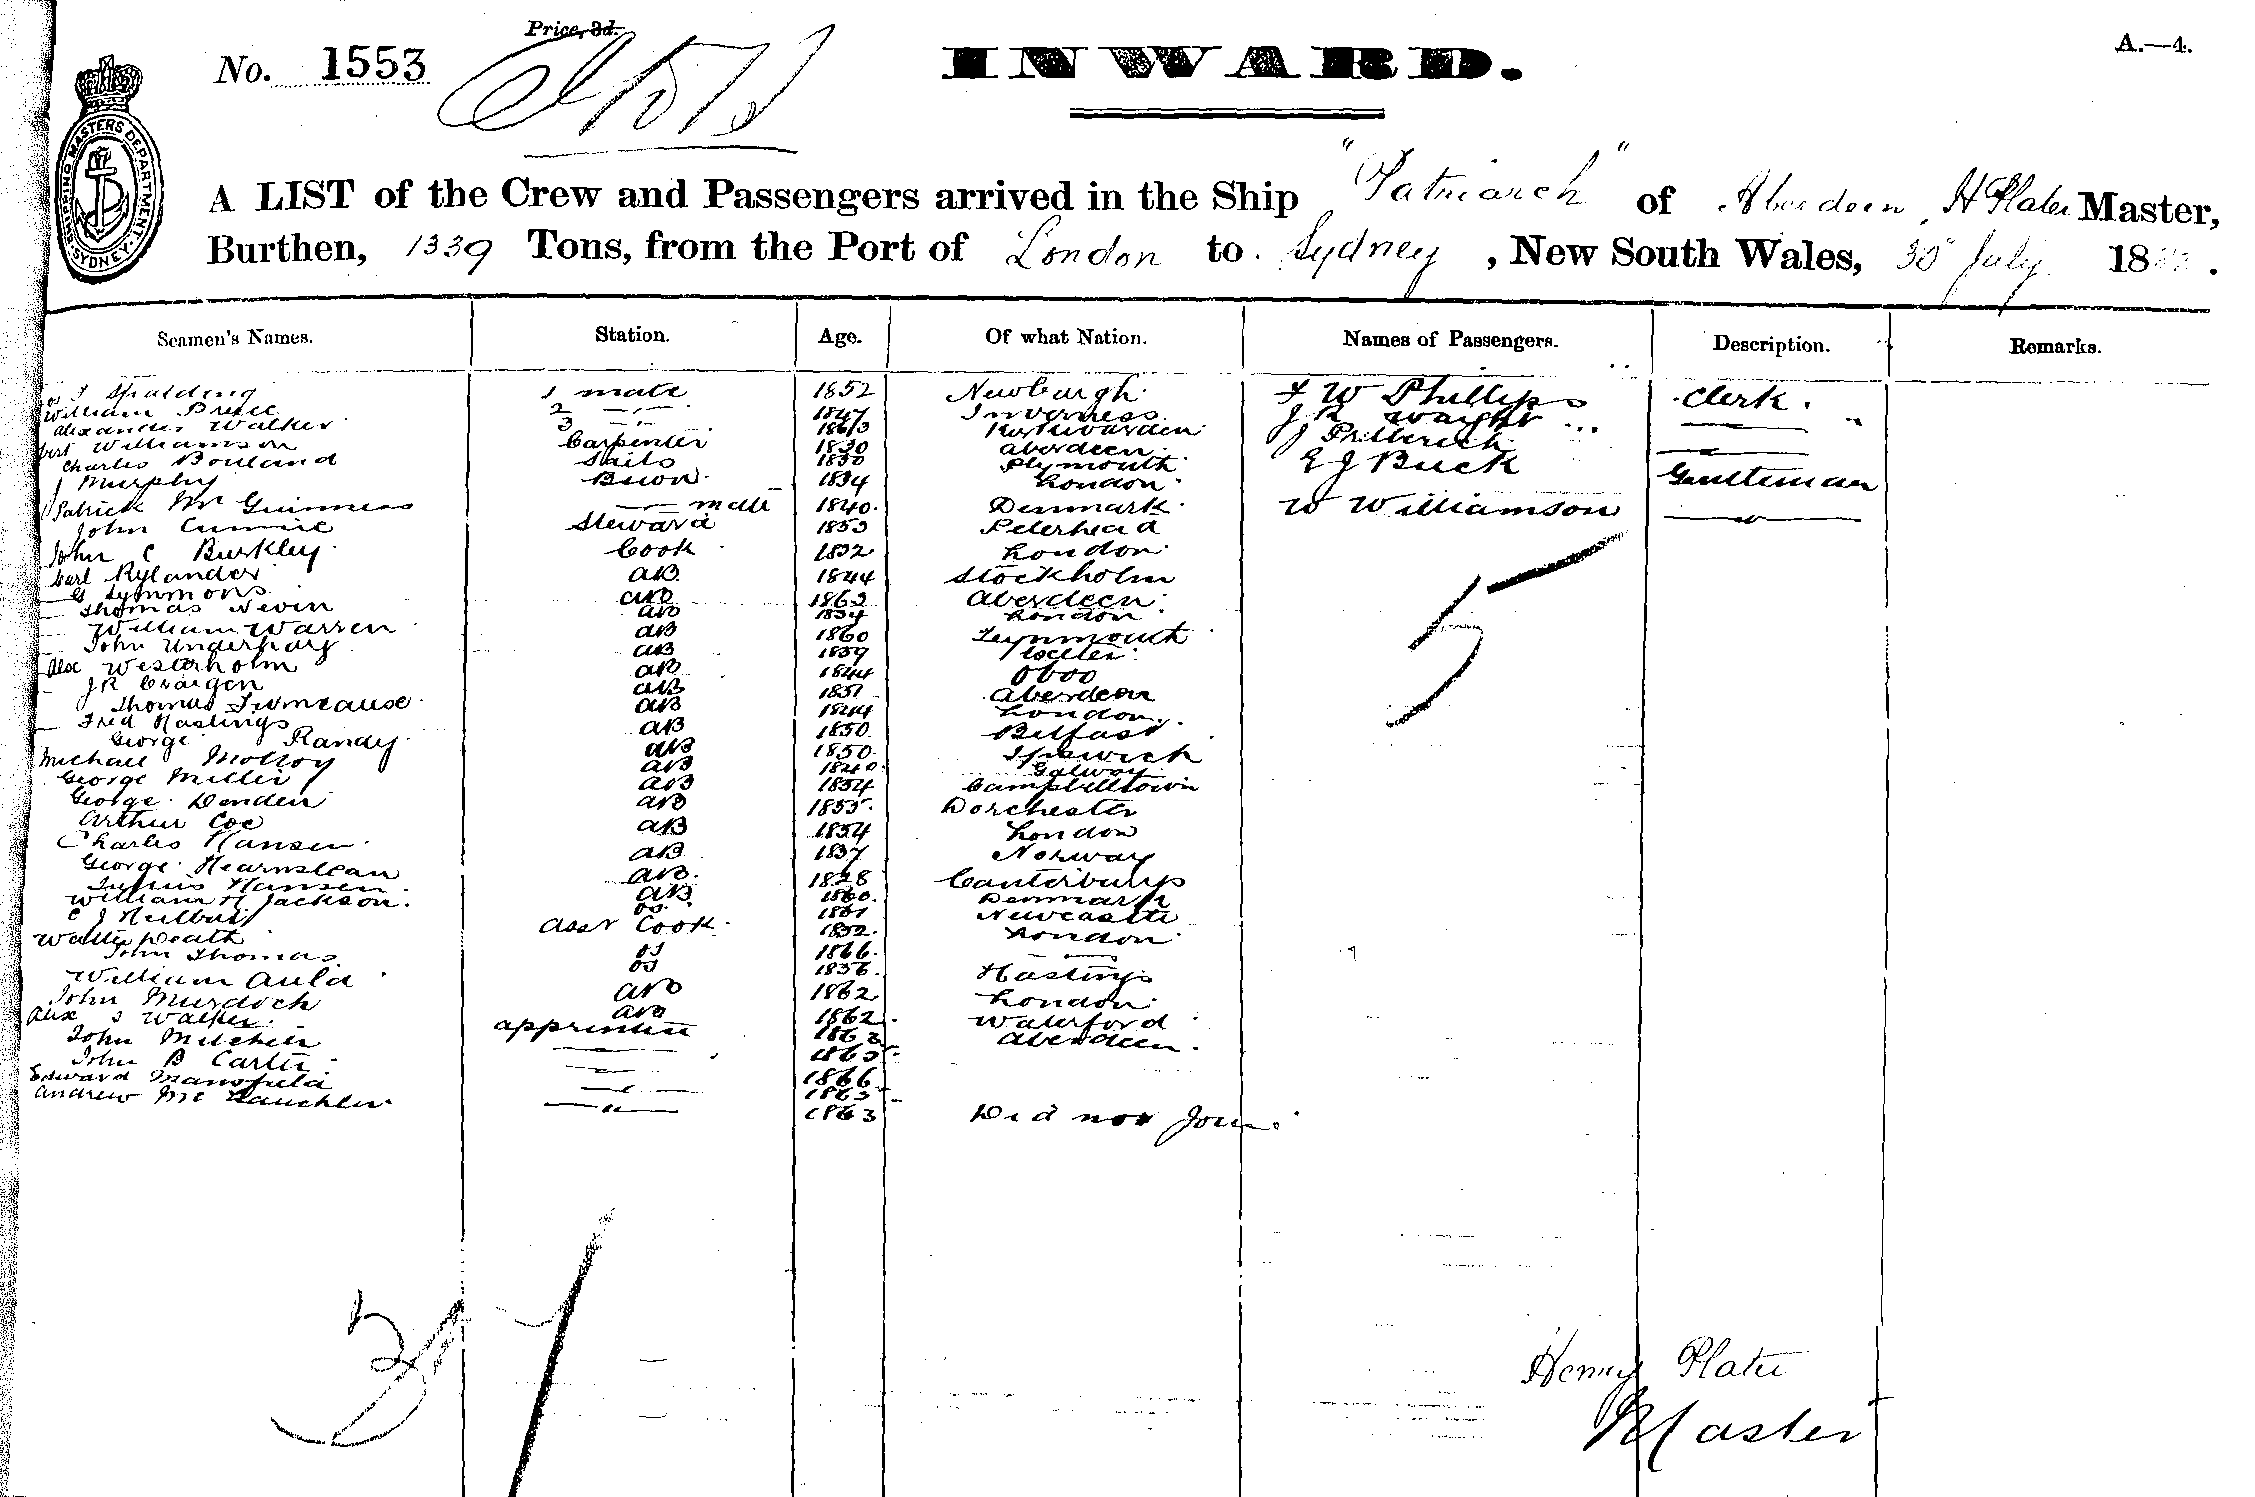 Price, 3d.
No. 1553
INWARD.
A.—4.
SHIPPING MASTERS DEPARTMENT. SYDNEY
A LIST of the Crew and Passengers arrived in the Ship "Patriarch" of Aberdeen, H Plater Master,
Burthen, 1339 Tons, from the Port of London to Sydney, New South Wales, 30 July 18
Seamen's Names. Station. Age. Of what Nation. Names of Passengers. Description. Remarks.
Spalding 1 mate 1852 Newburgh F W Phillips Clerk.
William 2 —"— 1847 Inverness J R Wright —"—
Alexander Walker 3 —"— Kirk
Williamson Carpenter 1830 Aberdeen J —"—
Charles Bouland Sails 1830 Plymouth E J Buck Gentleman
J Murphy 1834 London
Patrick Mc Guinness —"— mate 1840 Denmark W Williamson —"—
John Steward 1853 Peterhead
John C Burkley Cook 1832 London
Carl Rylander AB 1844 Stockholm
G Symmons AB 1863 Aberdeen
Thomas Nevin AB 1834 London
William Warren AB 1860
John AB 1839
Alex Westerholm AB 1844 Oboo
J R Craigen AB 1851 Aberdeen
Thomas AB 1844 London
Fred Hastings AB 1850 Belfast
George Randy AB 1850 Ipswich
Michael Molloy AB 1840 Galway
George Miller AB 1854 Campbelltown
George Denden AB 1855 Dorchester
Arthur Coe AB 1854 London
Charles Hansen AB 1837 Norway
George AB 1828 Canterbury
Julius Hansen AB 1860 Denmark
William H Jackson OS 1861 Newcastle
C J Asst Cook 1852 London
Walter Death OS 1866 —"—
John Thomas OS 1856 Hastings
William Auld AB 1862 London
John Murdoch AB 1862 Waterford
Alex J Walker apprentice 1863 Aberdeen
John Mitchell —"— 1865
John B Carter —"— 1866
Edward Mansfield —"— 1863
Andrew Mc Lauchlan —"— 1863 Did not Join
5
37
Henry Plater
Master